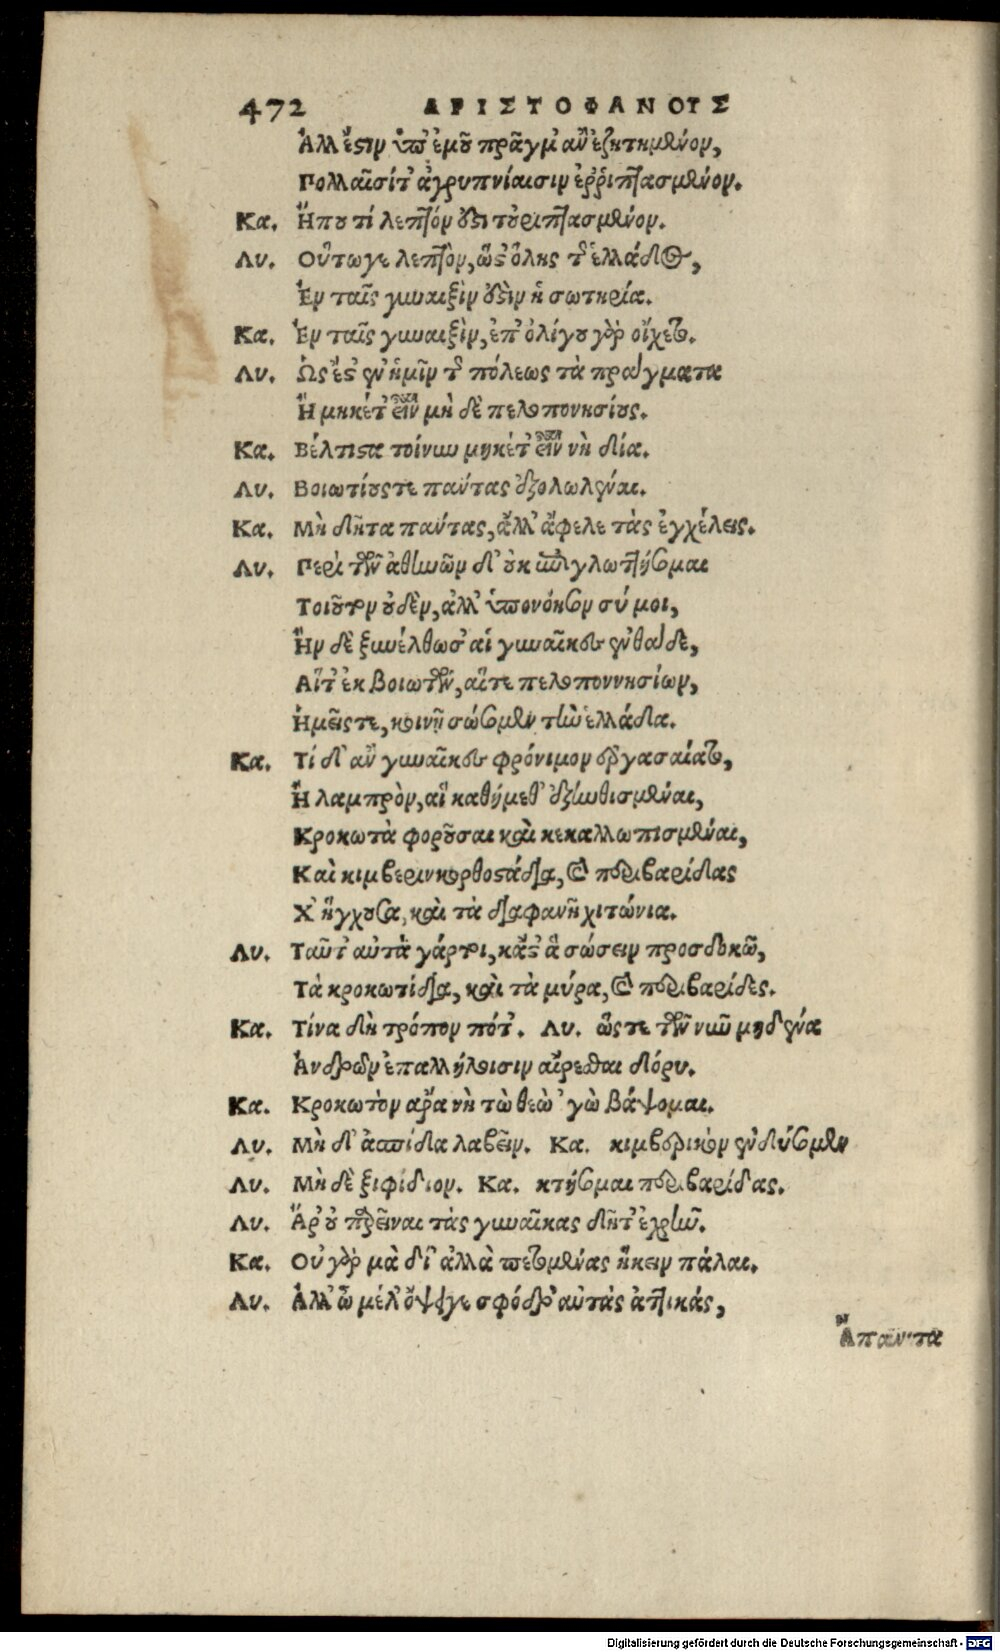 472 ΑΡΙΣΤΟΦΑΝΟΥΣ
Ἀλλ' ἔστιν ὑπ' ἐμοῦ πρᾶγμ' ἀνεζητημένον,
Πολλαῖσίτ' ἀγρυπνίαισιν ἐῤῥιπτασμένον.
Κα. Ἤπου τί λεπτόν ἐστι τοὐριπτασμένον.
Λυ. Οὕτωγε λεπτὸν, ὥσθ' ὅλης τῆς ἑλλάδος,
Ἐν ταῖς γυναιξὶν ἐστὶν ἡ σωτηρία.
Κα. Ἐν ταῖς γυναιξὶν, ἐπ' ὀλίγου γὰρ οἴχεται.
Λυ. Ὡς ἔστ' ἐν ἡμῖν τῆς πόλεως τὰ πράγματα
Ἢ μηκέτ' εἶναι μὴ δὲ πελοπονησίους.
Κα. Βέλτιστα τοίνυν μηκέτ' εἶναι νὴ δία.
Λυ. Βοιωτίους τε πάντας ἐξολωλέναι.
Κα. Μὴ δῆτα πάντας, ἀλλ' ἄφελε τὰς ἐγχέλεις.
Λυ. Περὶ τῶν ἀθηνῶν δ' οὐκ ἐπιγλωττήσομαι
Τοιοῦτον οὐδὲν, ἀλλ' ὑπονόησον σύ μοι,
Ἢν δὲ ξυνέλθωσ' αἱ γυναῖκες ἐνθάδε,
Αἵτ' ἐκ βοιωτῶν, αἵτε πελοποννησίων,
Ἡμεῖς τε, κοινῇ σώσομεν τὴν ἑλλάδα.
Κα. Τί δ' ἂν γυναῖκες φρόνιμον ἐργασαίατο,
Ἢ λαμπρὸν, αἳ καθήμεθ' ἐξηνθισμέναι,
Κροκωτὰ φοροῦσαι καὶ κεκαλλωπισμέναι,
Καὶ κιμβερινκορθοστάδια, καὶ περιβαρίδας
Χ' ἤγχουσα, καὶ τὰ διαφανῆ χιτώνια.
Λυ. Ταῦτ' αὐτὰ γάρτοι, κἄσθ' ἃ σώσειν προσδοκῶ,
Τὰ κροκωτίδια, καὶ τὰ μύρα, καὶ περιβαρίδες.
Κα. Τίνα δὴ τρόπον πότ'. Λυ. ὥστε τῶν νῦν μηδένα
Ἀνδρῶν ἐπαλλήλοισιν αἵρεσθαι δόρυ.
Κα. Κροκωτὸν ἄρα νὴ τὼ θεὼ 'γὼ βάψομαι.
Λυ. Μὴ δ' ἀσπίδα λαβεῖν. Κα. κιμβερικὸν ἐνδύσομαι
Λυ. Μὴ δὲ ξιφίδιον. Κα. κτήσομαι περιβαρίδας.
Λυ. Ἆρ' οὐ παρεῖναι τὰς γυναῖκας δῆτ' ἐχρῆν.
Κα. Οὐ γὰρ μὰ δί' ἀλλὰ πετομένας ἥκειν πάλαι.
Λυ. Ἀλλ' ὦ μέλ' ὄψει γε σφόδρ' αὐτὰς ἀττικάς,
Ἅπαντα
Digitalisierung gefördert durch die Deutsche Forschungsgemeinschaft - DFG